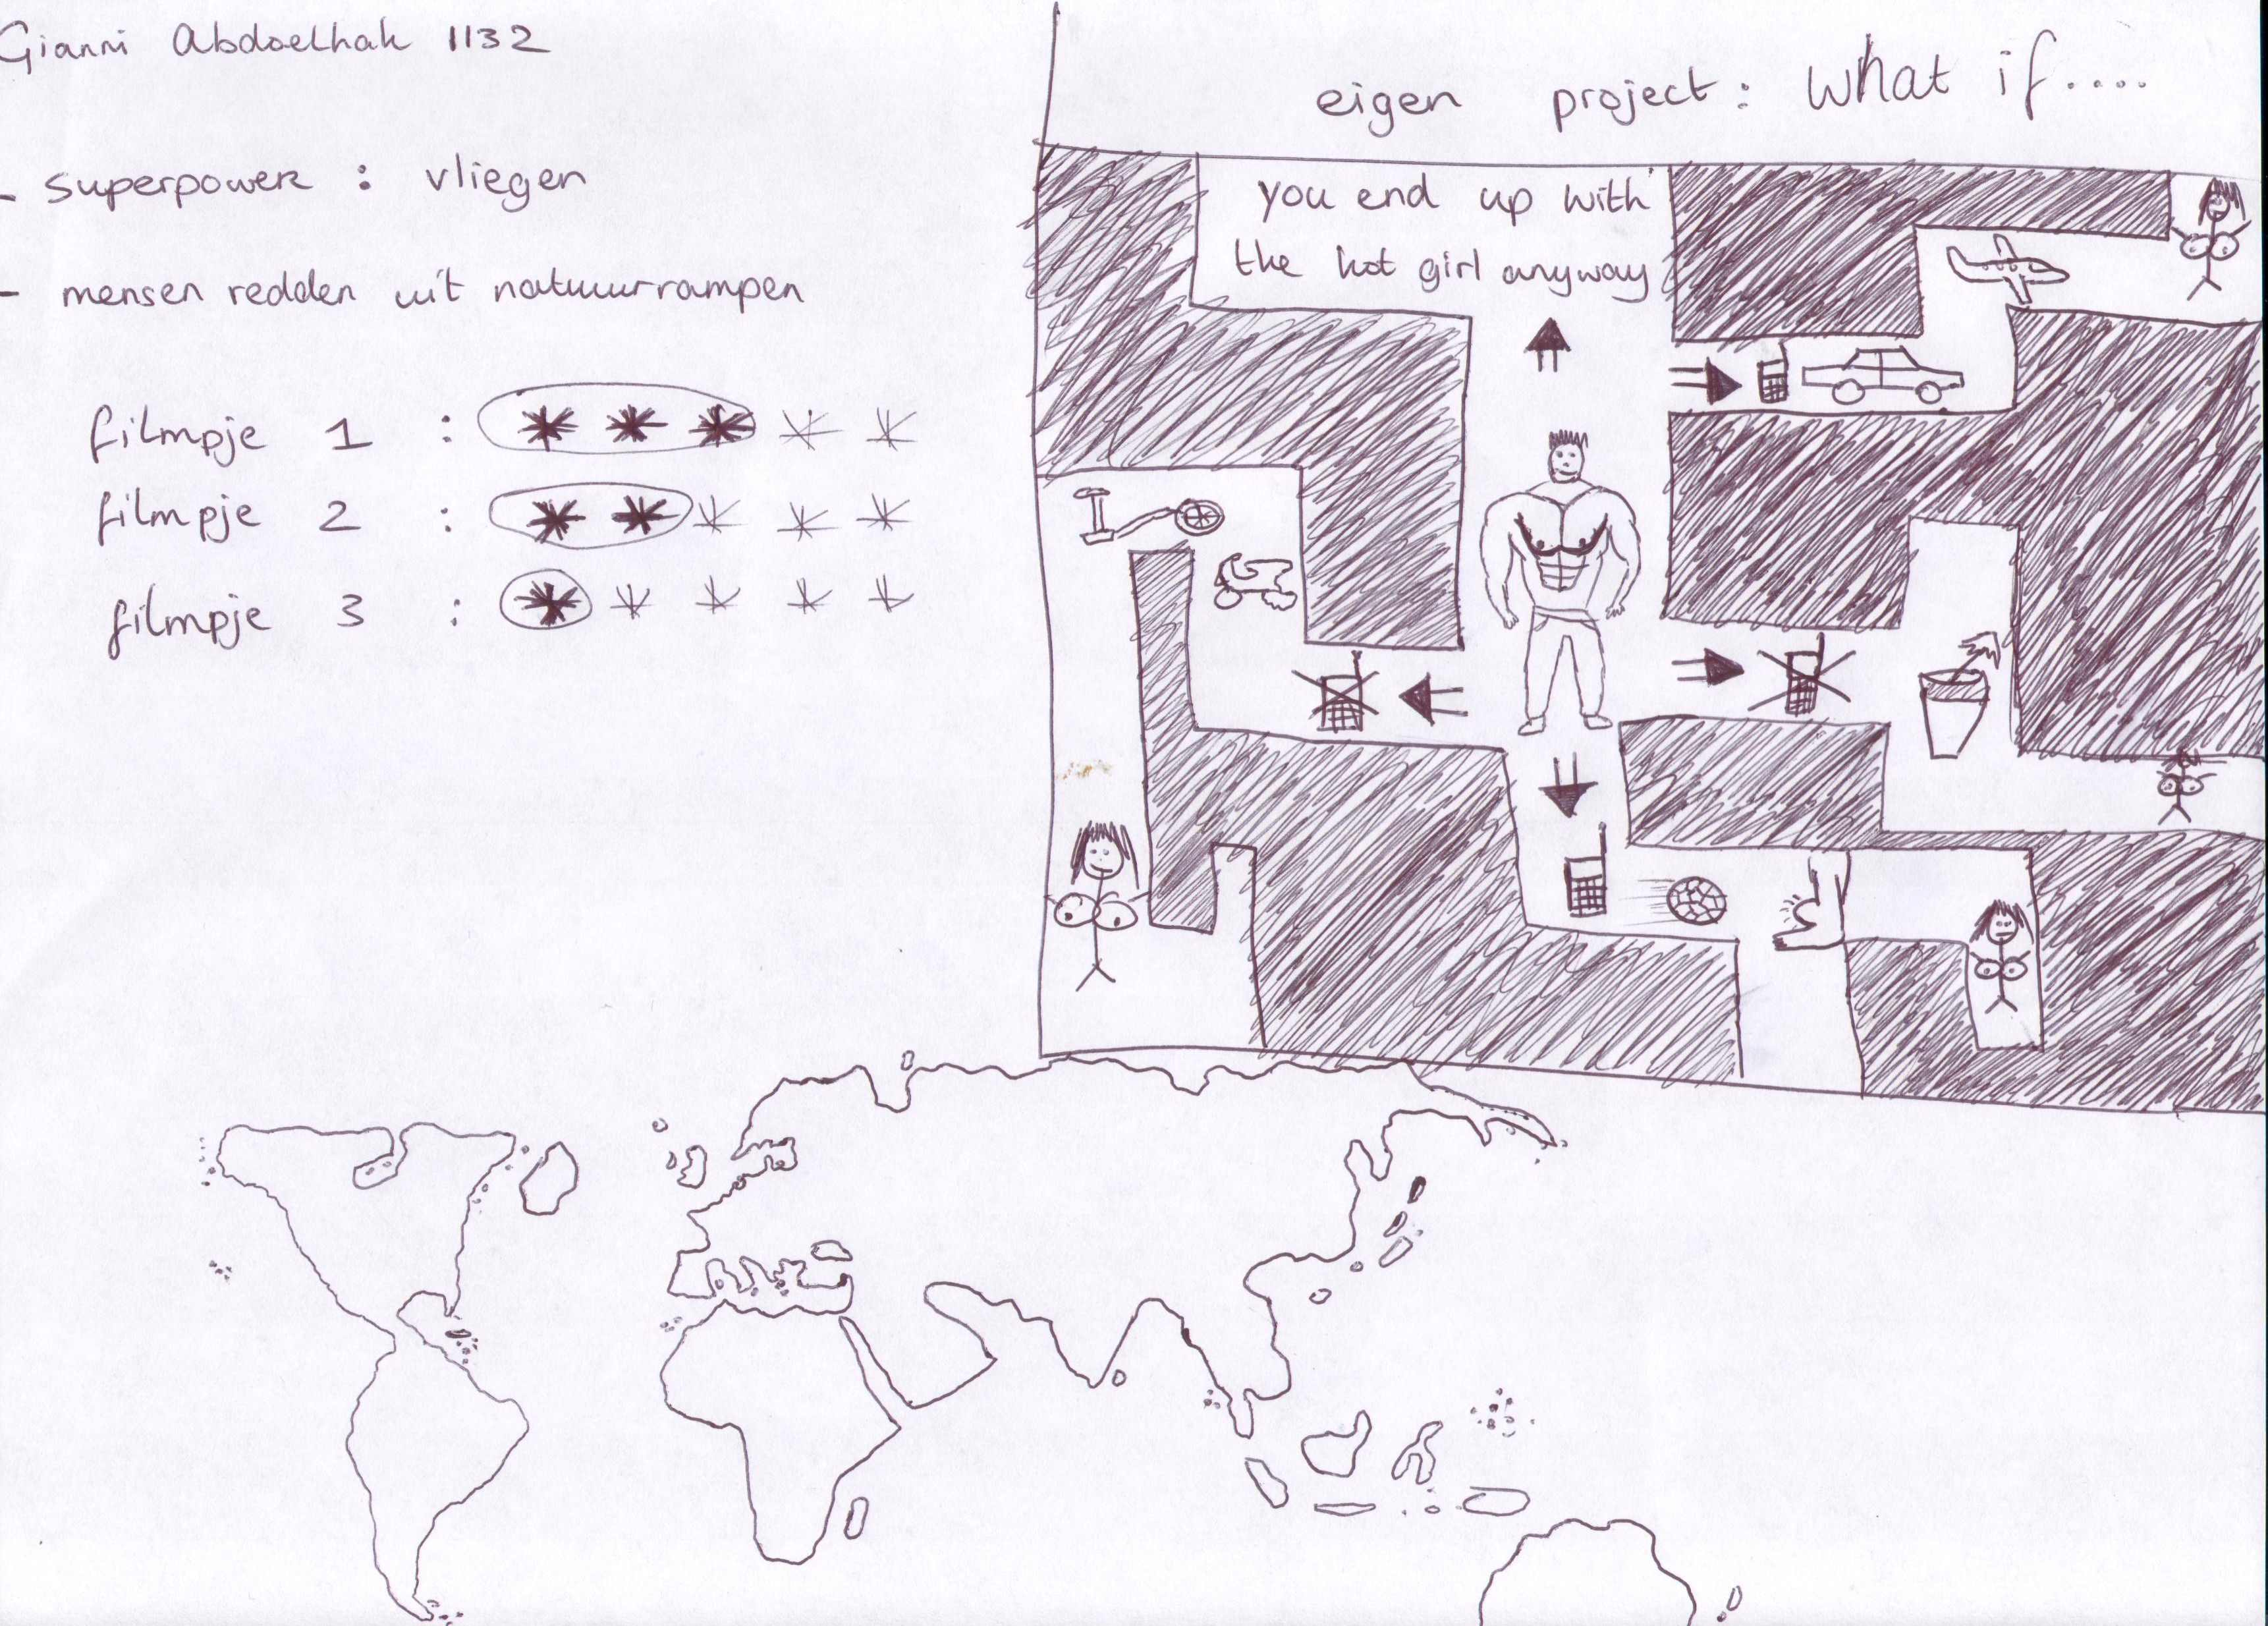 Gianni Abdoelhak 1132
- superpower : vliegen
- mensen redden uit natuurrampen
filmpje 1 :
filmpje 2 :
filmpje 3 :
eigen project : What if....
you end up with
the hot girl anyway